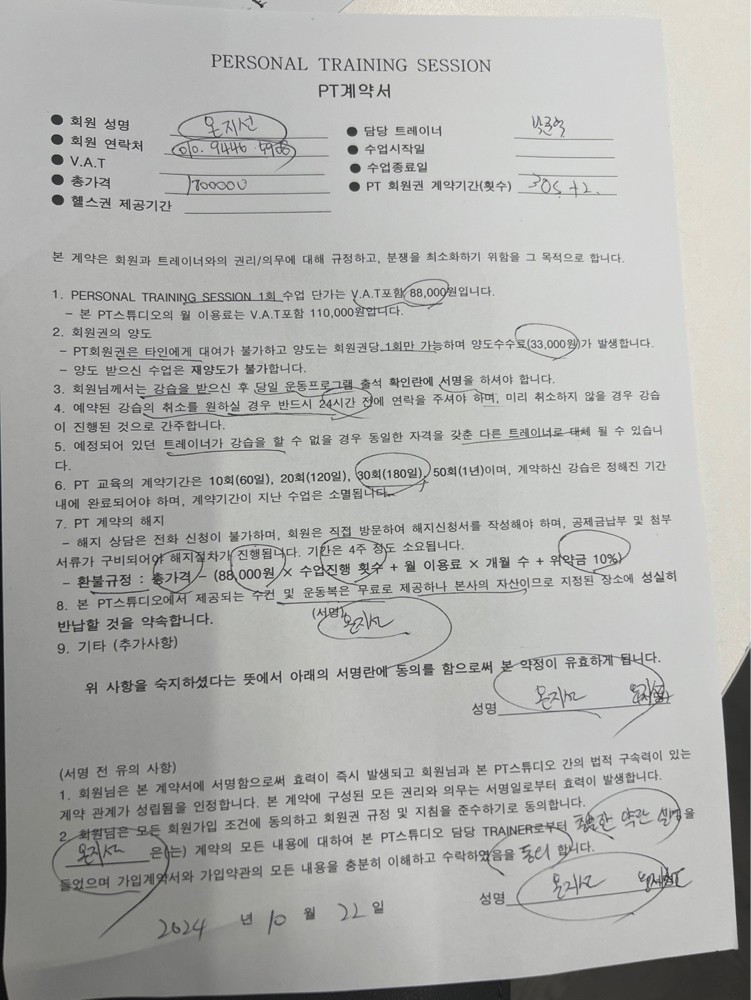 PERSONAL TRAINING SESSION
PT계약서
● 회원 성명 문지선
● 회원 연락처
● V.A.T
● 총가격 1700000
● 헬스권 제공기간
● 담당 트레이너
● 수업시작일
● 수업종료일
● PT 회원권 계약기간(횟수) 30S +2.
본 계약은 회원과 트레이너와의 권리/의무에 대해 규정하고, 분쟁을 최소화하기 위함을 그 목적으로 합니다.
1. PERSONAL TRAINING SESSION 1회 수업 단가는 V.A.T포함 88,000원입니다.
- 본 PT스튜디오의 월 이용료는 V.A.T포함 110,000원입니다.
2. 회원권의 양도
- PT회원권은 타인에게 대여가 불가하고 양도는 회원권당 1회만 가능하며 양도수수료(33,000원)가 발생합니다.
- 양도 받으신 수업은 재양도가 불가합니다.
3. 회원님께서는 강습을 받으신 후 당일 운동프로그램 출석 확인란에 서명을 하셔야 합니다.
4. 예약된 강습의 취소를 원하실 경우 반드시 24시간 전에 연락을 주셔야 하며, 미리 취소하지 않을 경우 강습
이 진행된 것으로 간주합니다.
5. 예정되어 있던 트레이너가 강습을 할 수 없을 경우 동일한 자격을 갖춘 다른 트레이너로 대체 될 수 있습니
다.
6. PT 교육의 계약기간은 10회(60일), 20회(120일), 30회(180일), 50회(1년)이며, 계약하신 강습은 정해진 기간
내에 완료되어야 하며, 계약기간이 지난 수업은 소멸됩니다.
7. PT 계약의 해지
- 해지 상담은 전화 신청이 불가하며, 회원은 직접 방문하여 해지신청서를 작성해야 하며, 공제금납부 및 첨부
서류가 구비되어야 해지절차가 진행됩니다. 기간은 4주 정도 소요됩니다.
- 환불규정 : 총가격 - (88,000원 × 수업진행 횟수 + 월 이용료 × 개월 수 + 위약금 10%)
8. 본 PT스튜디오에서 제공되는 수건 및 운동복은 무료로 제공하나 본사의 자산이므로 지정된 장소에 성실히
반납할 것을 약속합니다. (서명) 문지선
9. 기타 (추가사항)
위 사항을 숙지하셨다는 뜻에서 아래의 서명란에 동의를 함으로써 본 약정이 유효하게 됩니다.
성명 문지선
(서명 전 유의 사항)
1. 회원님은 본 계약서에 서명함으로써 효력이 즉시 발생되고 회원님과 본 PT스튜디오 간의 법적 구속력이 있는
계약 관계가 성립됨을 인정합니다. 본 계약에 구성된 모든 권리와 의무는 서명일로부터 효력이 발생합니다.
2. 회원님은 모든 회원가입 조건에 동의하고 회원권 규정 및 지침을 준수하기로 동의합니다.
문지선 은(는) 계약의 모든 내용에 대하여 본 PT스튜디오 담당 TRAINER로부터 충분한 약관 설명을
들었으며 가입계약서와 가입약관의 모든 내용을 충분히 이해하고 수락하였음을 동의 합니다.
성명 문지선
2024 년 10 월 22 일